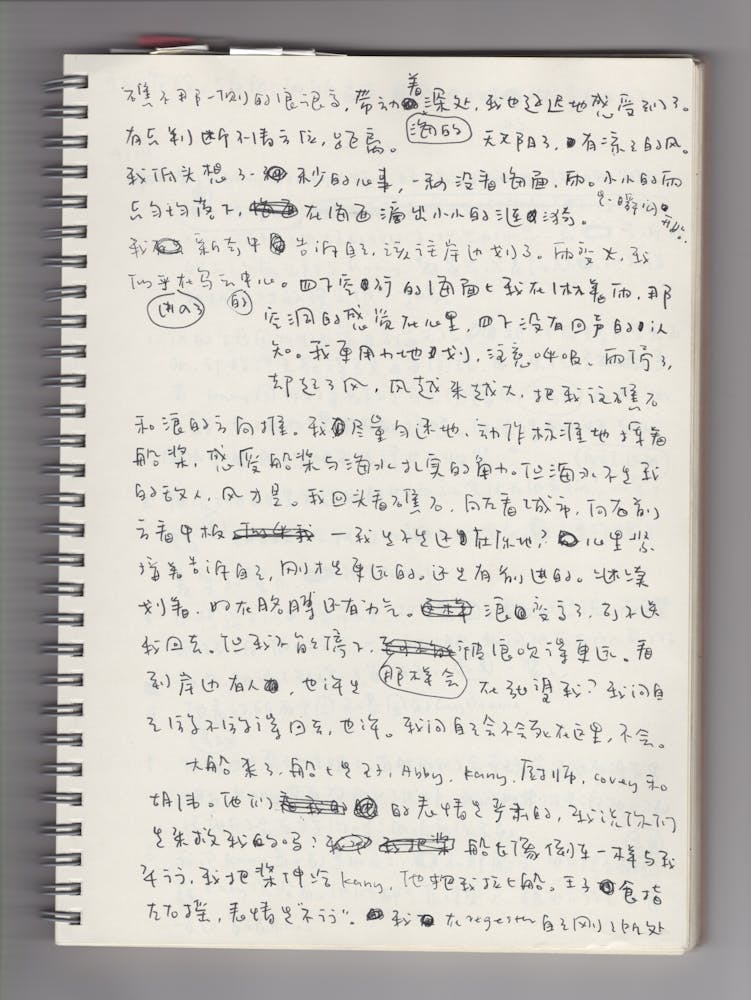 礁石那一侧的浪很高，带动着海的深处，我也延迟地感受到了。
有点判断不清方位，距离。 天又阴了，有凉凉的风。
我低头想了一秒的心事，一刻没看海面，雨。小小的雨
点均均落下，在海面滴出小小的涟漪。是一瞬间
我 告诉自己，该往岸边划了。雨变大，我
似乎在雨云中心。四下空行的海面上我在淋着雨，那
空洞的感觉在心里，四下没有回声的认
知。我更用力地划，注意呼吸，雨停了，
却起了风，风越来越大，把我往礁石
和浪的方向推。我尽量匀速地、动作标准地撑着
船桨，感受船桨与海水扎实的角力。但海水不是我
的敌人，风才是。我回头看礁石，向左看城市，向右前
方看甲板 — 我是不是还在原地？心里紧
接着告诉自己，刚才是更远的。还是有前进的。继续
划着，好在胳膊还有力气。浪变高了，
我回去。但我不能停下，那样会被浪吹得更远。看
到岸边有人，也许是 在 我？我问自
己 回去，也许。我问自己会不会死在这里，不会。
大船来了，船上是王子，Abby，Kany，厨师，Covey和
胡伟。他们的表情是严肃的，我说你们
是来救我的吗？船长像倒车一样与我
平行，我把桨伸给Kany，他把我拉上船。王子食指
左右摇，表情是“不行”。我在register自己刚